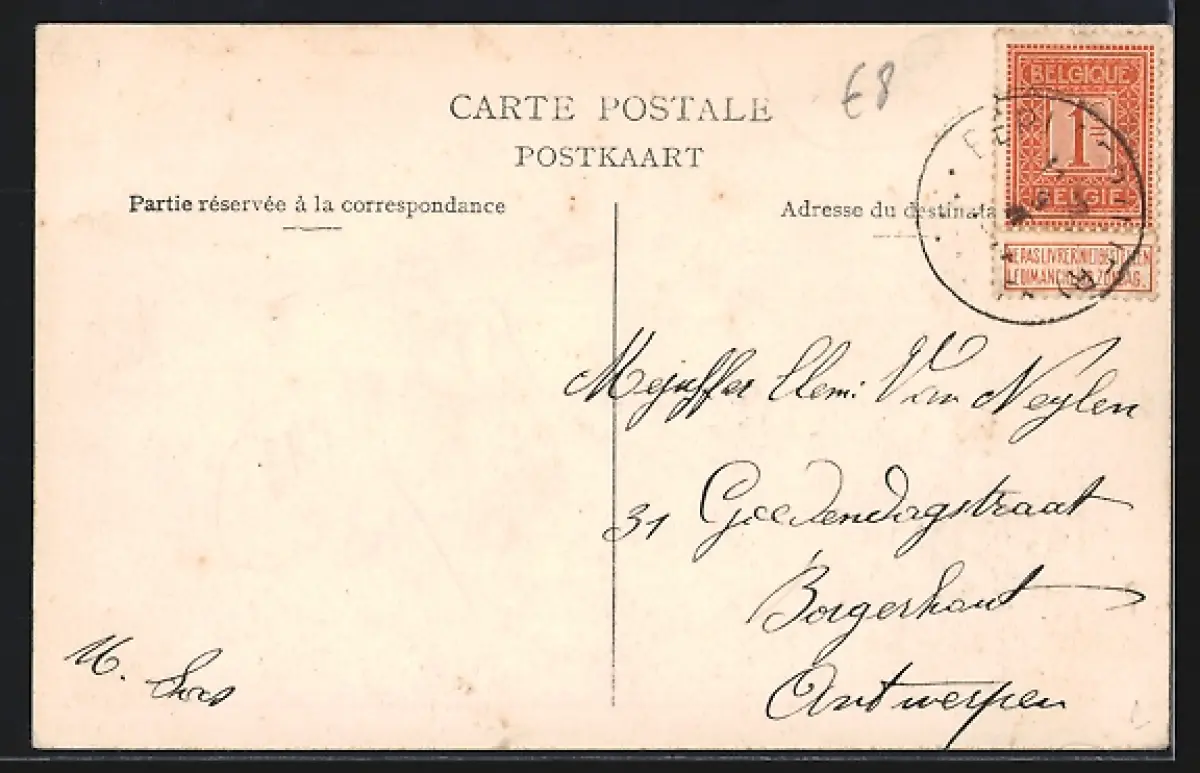 CARTE POSTALE
€8
POSTKAART
Partie réservée à la correspondance
Adresse du destinata
BELGIQUE
1
BELGIE
NE PAS LIVRER NIET BESTELLEN
LE DIMANCHE ZONDAG.
Mejuffer Clem: Van Neylen
31 Goedendagstraat
Borgerhout
Antwerpen